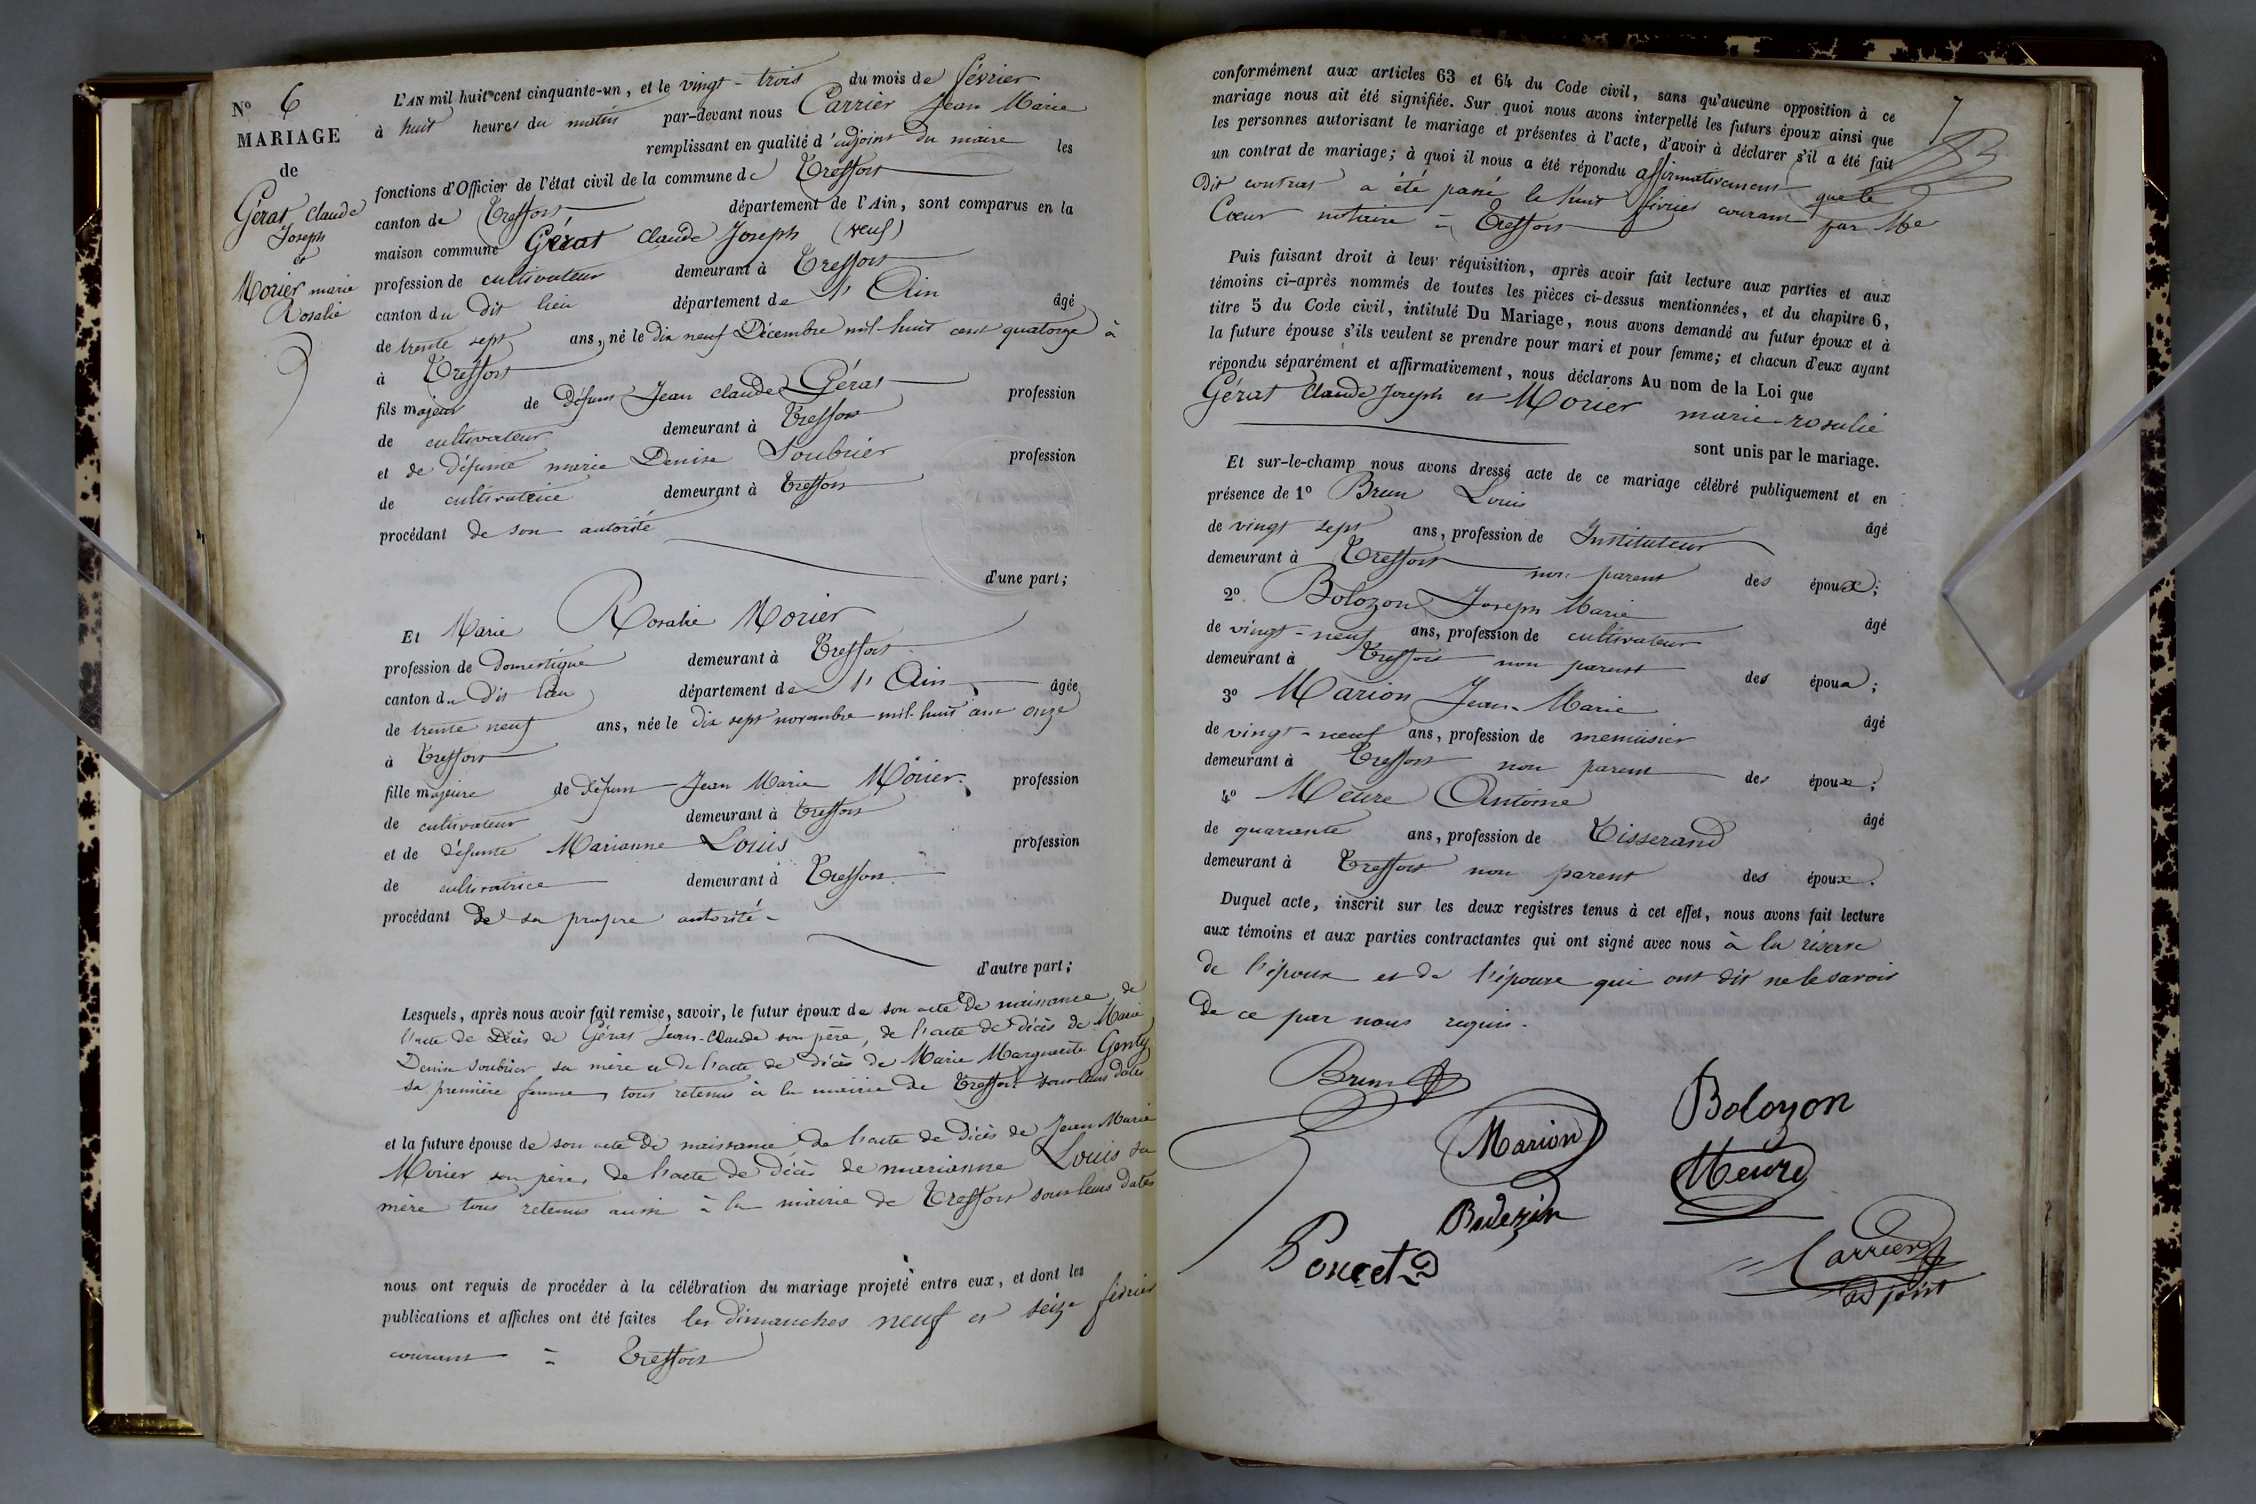 N° 6
MARIAGE
de
Gérat Claude
Joseph
et
Morier marie
Rosalie
L'AN mil huit cent cinquante-un, et le vingt-trois du mois de février
à huit heures du matin par-devant nous Carrier Jean Marie
remplissant en qualité d'adjoint du maire les
fonctions d'Officier de l'état civil de la commune de Treffort
canton de Treffort département de l'Ain, sont comparus en la
maison commune Gérat Claude Joseph (veuf)
profession de cultivateur demeurant à Treffort
canton du dit lieu département de l'Ain âgé
de trente sept ans, né le dix neuf Décembre mil-huit cent quatorze à
à Treffort
fils majeur de défunt Jean Claude Gérat profession
de cultivateur demeurant à Treffort
et de défunte marie Denise Soubrier profession
de cultivatrice demeurant à Treffort
procédant de son autorité
d'une part;
Et Marie Rosalie Morier
profession de domestique demeurant à Treffort
canton du dit lieu département de l'Ain âgée
de trente neuf ans, née le dix sept novembre mil-huit cent onze
à Treffort
fille majeure de défunt Jean Marie Morier profession
de cultivateur demeurant à Treffort
et de défunte Marianne Louis profession
de cultivatrice demeurant à Treffort
procédant de sa propre autorité-
d'autre part;
Lesquels, après nous avoir fait remise, savoir, le futur époux de son acte de naissance, de
l'acte de décès de Gérat Jean-Claude son père, de l'acte de décès de Marie
Denise Soubrier sa mère et de l'acte de décès de Marie Marguerite Genty
sa première femme, tous retenus à la mairie de Treffort sous leurs dates
et la future épouse de son acte de naissance, de l'acte de décès de Jean Marie
Morier son père, de l'acte de décès de marianne Louis sa
mère tous retenus aussi à la mairie de Treffort sous leurs dates
nous ont requis de procéder à la célébration du mariage projeté entre eux, et dont les
publications et affiches ont été faites les dimanches neuf et seize février
courant à Treffort
7
conformément aux articles 63 et 64 du Code civil, sans qu'aucune opposition à ce
mariage nous ait été signifiée. Sur quoi nous avons interpellé les futurs époux ainsi que
les personnes autorisant le mariage et présentes à l'acte, d'avoir à déclarer s'il a été fait
un contrat de mariage; à quoi il nous a été répondu affirmativement que le
dit contrat a été passé le huit février courant par Me
Cœur notaire à Treffort
Puis faisant droit à leur réquisition, après avoir fait lecture aux parties et aux
témoins ci-après nommés de toutes les pièces ci-dessus mentionnées, et du chapitre 6,
titre 5 du Code civil, intitulé Du Mariage, nous avons demandé au futur époux et à
la future épouse s'ils veulent se prendre pour mari et pour femme; et chacun d'eux ayant
répondu séparément et affirmativement, nous déclarons Au nom de la Loi que
Gérat Claude Joseph et Morier marie-rosalie
sont unis par le mariage.
Et sur-le-champ nous avons dressé acte de ce mariage célébré publiquement et en
présence de 1° Brun Louis âgé
de vingt sept ans, profession de Instituteur
demeurant à Treffort non parent des époux;
2° Bolozon Joseph Marie âgé
de vingt-neuf ans, profession de cultivateur
demeurant à Treffort non parent des époux;
3° Marion Jean-Marie âgé
de vingt-neuf ans, profession de menuisier
demeurant à Treffort non parent des époux;
4° Meure Antoine âgé
de quarante ans, profession de Tisserand
demeurant à Treffort non parent des époux.
Duquel acte, inscrit sur les deux registres tenus à cet effet, nous avons fait lecture
aux témoins et aux parties contractantes qui ont signé avec nous à la réserve
de l'époux et de l'épouse qui ont dit ne le savoir
de ce par nous requis.
Brun
Marion
Bolozon
Meure
Poncet
Carrier
adjoint